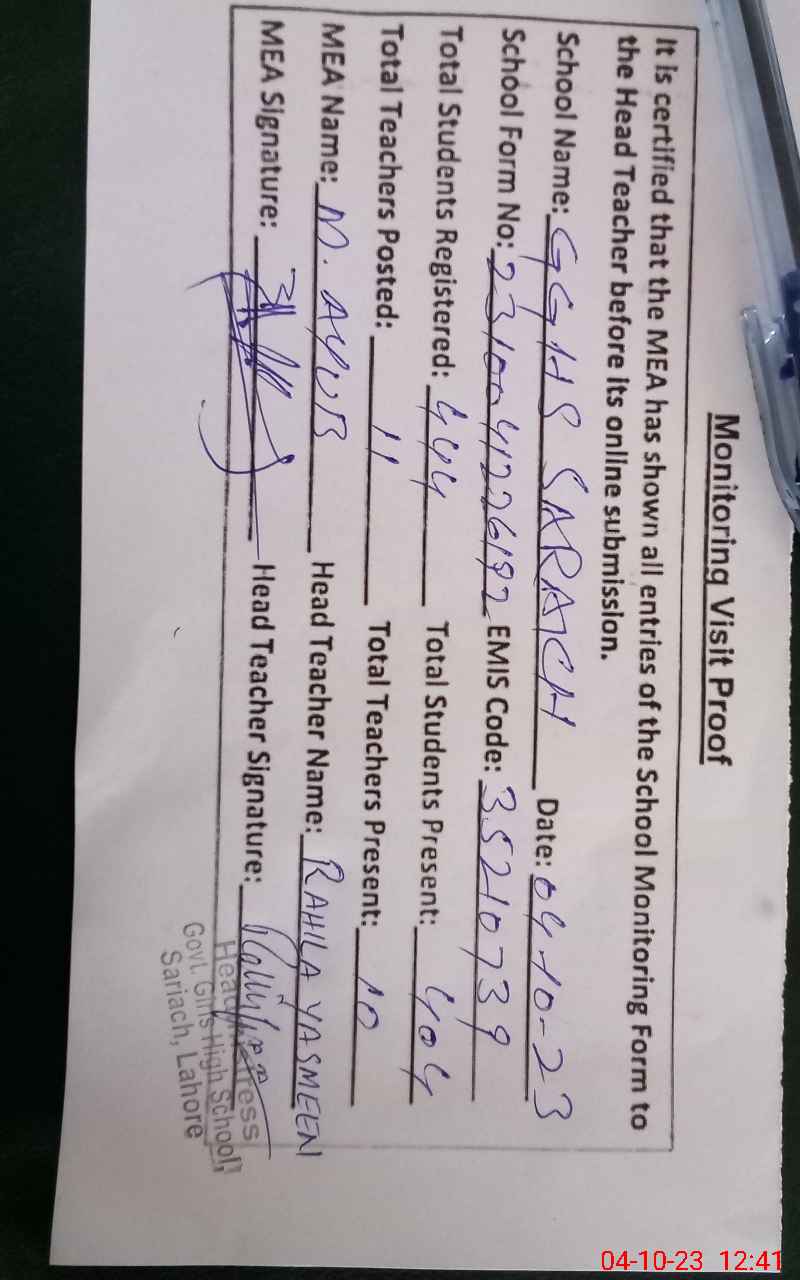 Monitoring Visit Proof
It is certified that the MEA has shown all entries of the School Monitoring Form to
the Head Teacher before its online submission.
School Name: GGHS SARAICH Date: 04-10-23
School Form No: EMIS Code: 35210739
Total Students Registered: 444 Total Students Present: 404
Total Teachers Posted: 11 Total Teachers Present: 10
MEA Name: M. AYUB Head Teacher Name: RAHILA YASMEEN
MEA Signature: Head Teacher Signature:
Headmistress
Govt. Girls High School,
Sariach, Lahore
04-10-23 12:41